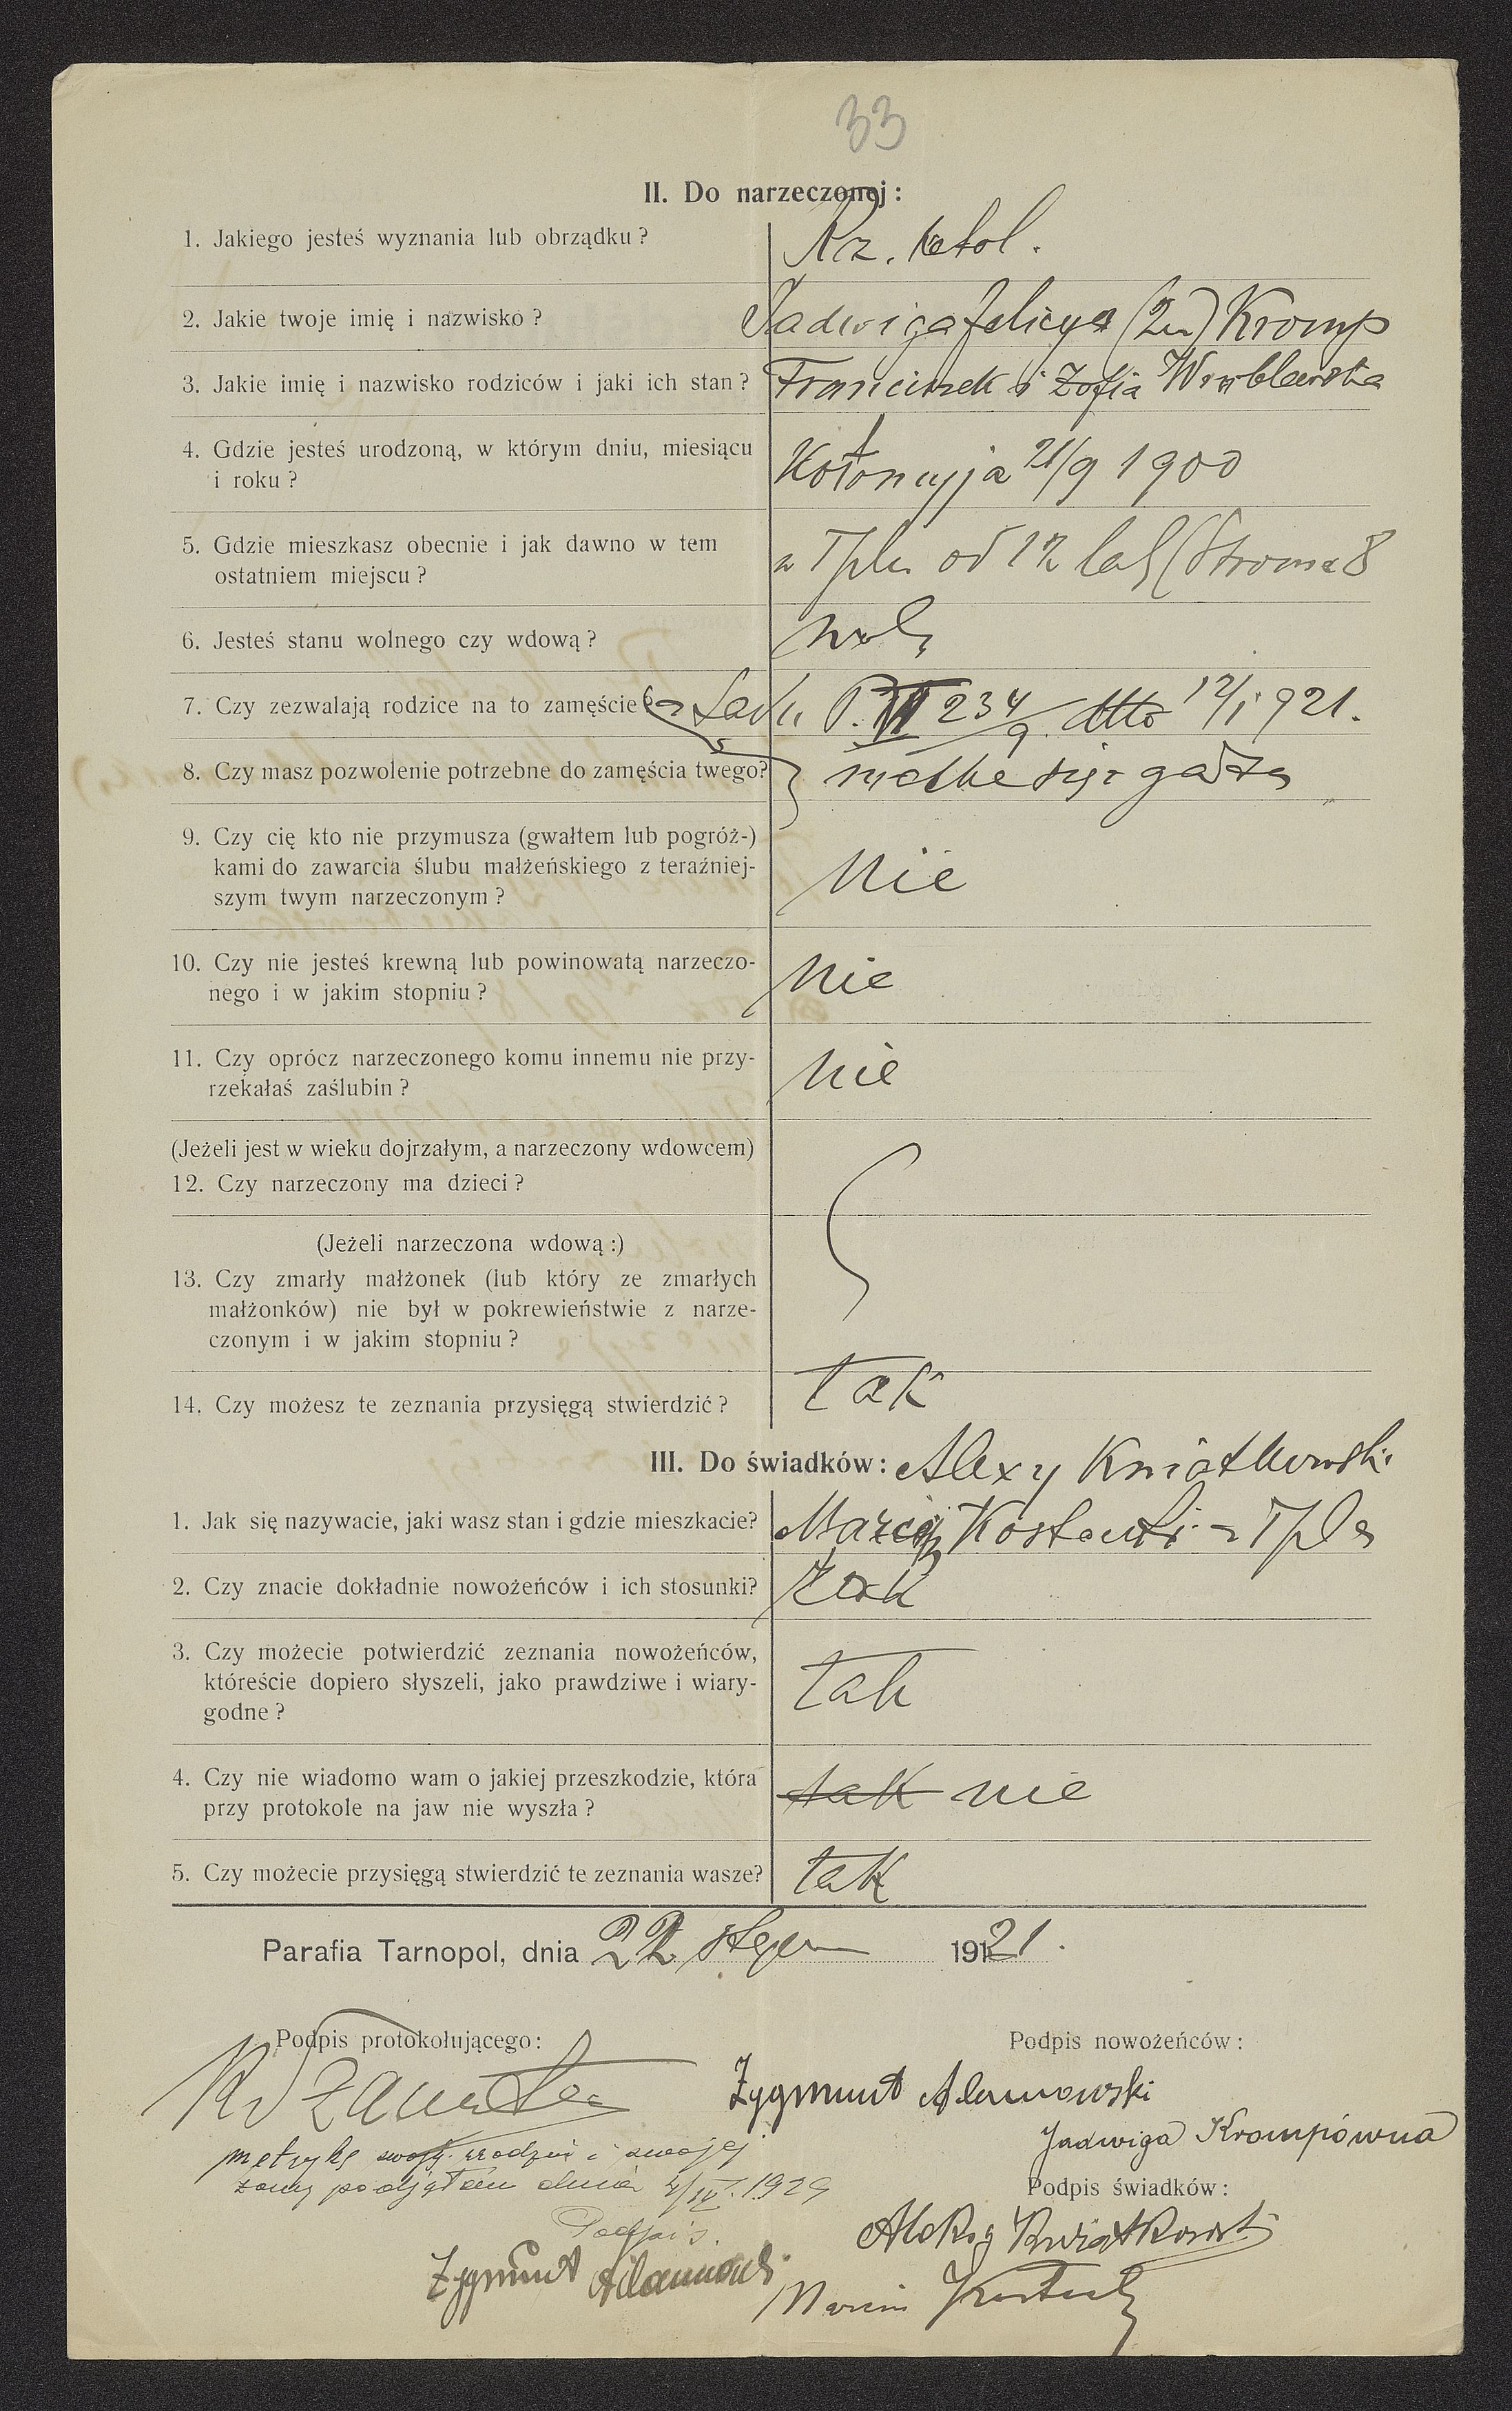 33
II. Do narzeczonej:
1. Jakiego jesteś wyznania lub obrządku?
Rz. katol.
2. Jakie twoje imię i nazwisko?
Jadwiga Felicya (2im) Kromp
3. Jakie imię i nazwisko rodziców i jaki ich stan?
Franciszek i Zofia Wróblewska
4. Gdzie jesteś urodzoną, w którym dniu, miesiącu
i roku?
21/9 1900
5. Gdzie mieszkasz obecnie i jak dawno w tem
ostatniem miejscu?
w Tplu od 12 lat (Stroma 8
6. Jesteś stanu wolnego czy wdową?
wol.
7. Czy zezwalają rodzice na to zamęście?
Sadu P. III 234/9 dtto 12/1 921.
8. Czy masz pozwolenie potrzebne do zamęścia twego?
matka się gadza
9. Czy cię kto nie przymusza (gwałtem lub pogróż-)
kami do zawarcia ślubu małżeńskiego z teraźniej-
szym twym narzeczonym?
Nie
10. Czy nie jesteś krewną lub powinowatą narzeczo-
nego i w jakim stopniu?
Nie
11. Czy oprócz narzeczonego komu innemu nie przy-
rzekałaś zaślubin?
Nie
(Jeżeli jest w wieku dojrzałym, a narzeczony wdowcem)
12. Czy narzeczony ma dzieci?
(Jeżeli narzeczona wdową:)
13. Czy zmarły małżonek (lub który ze zmarłych
małżonków) nie był w pokrewieństwie z narze-
czonym i w jakim stopniu?
14. Czy możesz te zeznania przysięgą stwierdzić?
tak
III. Do świadków: Alexy Kwiatkowski
1. Jak się nazywacie, jaki wasz stan i gdzie mieszkacie?
Marcin Kostecki z Tpla
2. Czy znacie dokładnie nowożeńców i ich stosunki?
tak
3. Czy możecie potwierdzić zeznania nowożeńców,
któreście dopiero słyszeli, jako prawdziwe i wiary-
godne?
tak
4. Czy nie wiadomo wam o jakiej przeszkodzie, która
przy protokole na jaw nie wyszła?
tak nie
5. Czy możecie przysięgą stwierdzić te zeznania wasze?
tak
Parafia Tarnopol, dnia 22 stycz 1921.
Podpis protokołującego:
Podpis nowożeńców:
Zygmunt Adamowski
Jadwiga Krompówna
metrykę swoją urodzin i swojej
żony podjąłem dnia 4/IV. 1929
Podpis.
Zygmunt Adamowski
Podpis świadków:
Aleksy Kwiatkowski
Marcin Kostecki